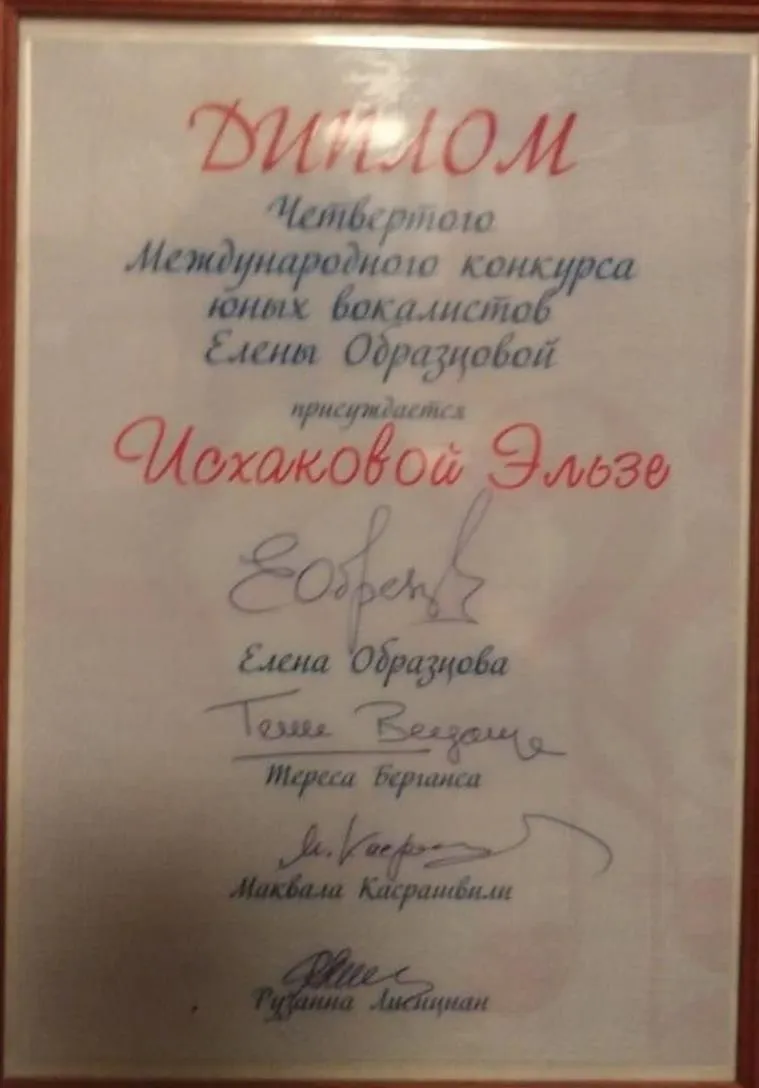 ДИПЛОМ
Четвертого
Международного конкурса
юных вокалистов
Елены Образцовой
присуждается
Исхаковой Эльзе
Елена Образцова
Тереса Берганса
Маквала Касрашвили
Рузанна Лисициан